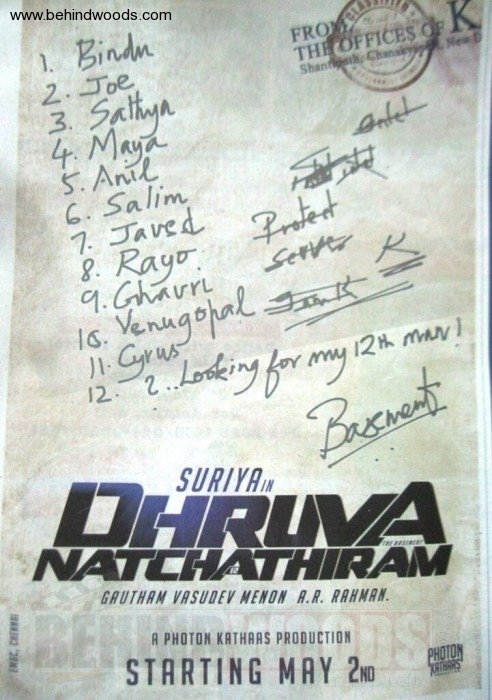 www.behindwoods.com
CLASSIFIED
FROM
THE OFFICES OF K
Shantipath, Chanakyapuri, New D
1. Bindu
2. Joe
3. Sathya
4. Maya
5. Anil
6. Salim
7. Javed
8. Rayo.
9. Ghavri
10. Venugopal
11. Cyrus
12. 2.. Looking for my 12th man!
Protect
Serves
K
Basement
SURIYA IN
DHRUVA
THE BASEMENT
NATCHATHIRAM
12
GAUTHAM VASUDEV MENON A.R. RAHMAN.
BEHINDWOODS
A PHOTON KATHAAS PRODUCTION
STARTING MAY 2ND
PHOTON
KATHAAS
EMGC, CHENNAI